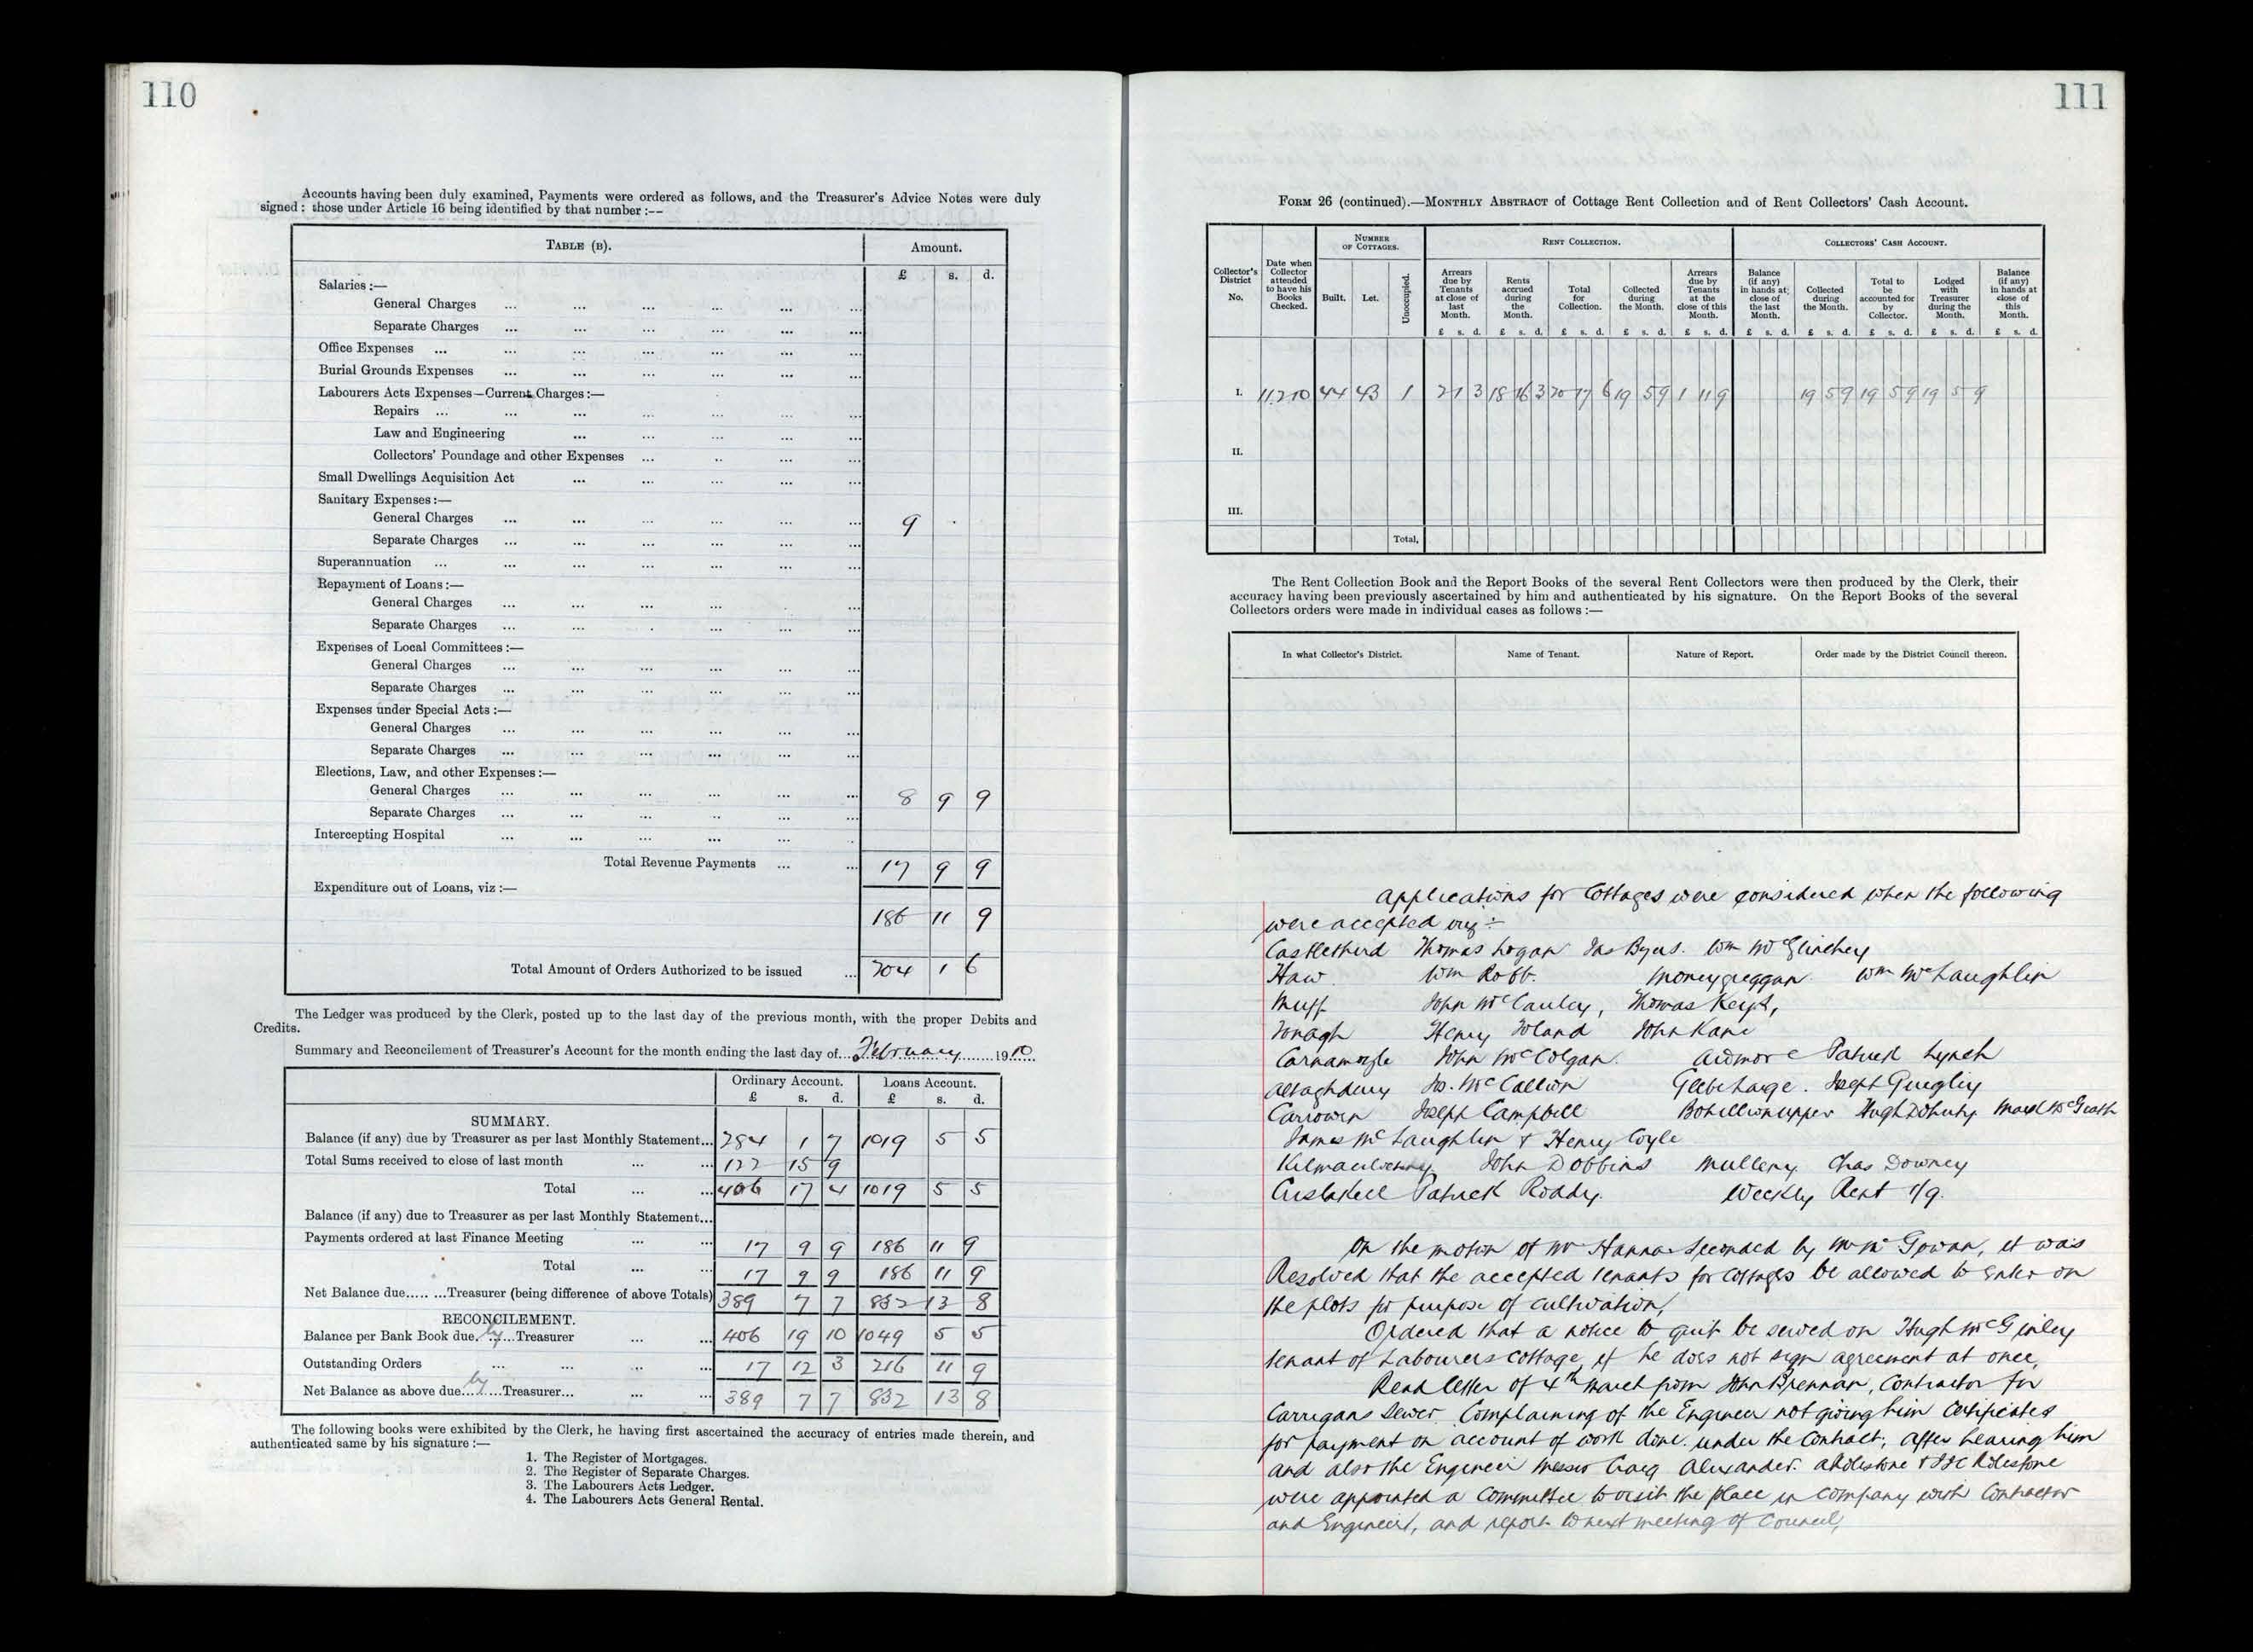 110
Accounts having been duly examined, Payments were ordered as follows, and the Treasurer's Advice Notes were duly
signed: those under Article 16 being identified by that number :—
TABLE (B). Amount.
£ s. d.
Salaries :—
General Charges
Separate Charges
Office Expenses
Burial Grounds Expenses
Labourers Acts Expenses—Current Charges :—
Repairs
Law and Engineering
Collectors' Poundage and other Expenses
Small Dwellings Acquisition Act
Sanitary Expenses :—
General Charges 9 .
Separate Charges
Superannuation
Repayment of Loans :—
General Charges
Separate Charges
Expenses of Local Committees :—
General Charges
Separate Charges
Expenses under Special Acts :—
General Charges
Separate Charges
Elections, Law, and other Expenses :—
General Charges 8 9 9
Separate Charges
Intercepting Hospital
Total Revenue Payments 17 9 9
Expenditure out of Loans, viz :—
186 11 9
Total Amount of Orders Authorized to be issued 204 1 6
The Ledger was produced by the Clerk, posted up to the last day of the previous month, with the proper Debits and
Credits.
Summary and Reconcilement of Treasurer's Account for the month ending the last day of February 1910
Ordinary Account. Loans Account.
£ s. d. £ s. d.
SUMMARY.
Balance (if any) due by Treasurer as per last Monthly Statement... 284 1 7 1019 5 5
Total Sums received to close of last month 122 15 9
Total 406 17 4 1019 5 5
Balance (if any) due to Treasurer as per last Monthly Statement...
Payments ordered at last Finance Meeting 17 9 9 186 11 9
Total 17 9 9 186 11 9
Net Balance due........Treasurer (being difference of above Totals) 389 7 7 832 13 8
RECONCILEMENT.
Balance per Bank Book due by Treasurer 406 19 10 1049 5 5
Outstanding Orders 17 12 3 216 11 9
Net Balance as above due by Treasurer... 389 7 7 832 13 8
The following books were exhibited by the Clerk, he having first ascertained the accuracy of entries made therein, and
authenticated same by his signature :—
1. The Register of Mortgages.
2. The Register of Separate Charges.
3. The Labourers Acts Ledger.
4. The Labourers Acts General Rental.
111
FORM 26 (continued).—MONTHLY ABSTRACT of Cottage Rent Collection and of Rent Collectors' Cash Account.
NUMBER OF COTTAGES. RENT COLLECTION. COLLECTORS' CASH ACCOUNT.
Collector's District No. Date when Collector attended to have his Books Checked. Built. Let. Unoccupied. Arrears due by Tenants at close of last Month. Rents accrued during the Month. Total for Collection. Collected during the Month. Arrears due by Tenants at the close of this Month. Balance (if any) in hands at close of the last Month. Collected during the Month. Total to be accounted for by Collector. Lodged with Treasurer during the Month. Balance (if any) in hands at close of this Month.
£ s. d. £ s. d. £ s. d. £ s. d. £ s. d. £ s. d. £ s. d. £ s. d. £ s. d. £ s. d.
I. 11.2.10 44 43 1 2 1 3 18 16 3 20 17 6 19 5 9 1 11 9 19 5 9 19 5 9 19 5 9
II.
III.
Total,
The Rent Collection Book and the Report Books of the several Rent Collectors were then produced by the Clerk, their
accuracy having been previously ascertained by him and authenticated by his signature. On the Report Books of the several
Collectors orders were made in individual cases as follows :—
In what Collector's District. Name of Tenant. Nature of Report. Order made by the District Council thereon.
Applications for Cottages were considered when the following
were accepted viz :-
Thomas Logan Jas Byers. Wm McGlinchey
Haw Wm Robb. Moneygreggan. Wm McLaughlin
Muff John McCauley, Thomas Keys,
Tonagh Henry Toland John Kane
Carnamoyle John McColgan. Ardmore Patrick Lynch
Altaghderry Jos. McCallion Glebe Large. Joseph Quigley
Carrowen Joseph Campbell Bohillion upper Hugh Doherty McGrath
James McLaughlin & Henry Coyle
John Dobbins Mulleny Chas Downey
Patrick Roddy. Weekly Rent 1/9.
On the motion of Mr Hanna Seconded by Mr McGowan, it was
Resolved that the accepted tenants for Cottages be allowed to enter on
the plots for purpose of cultivation,
Ordered that a notice to quit be served on Hugh McGinley
tenant of Labourers Cottage, if he does not sign agreement at once,
Read letter of 4th March from John Brennan, Contractor for
Carrigans Sewer Complaining of the Engineer not giving him Certificates
for payment on account of work done under the Contract, After hearing him
and also the Engineer Messrs Craig Alexander.
were appointed a Committee to visit the place in company with Contractor
and Engineer, and report to next meeting of Council,